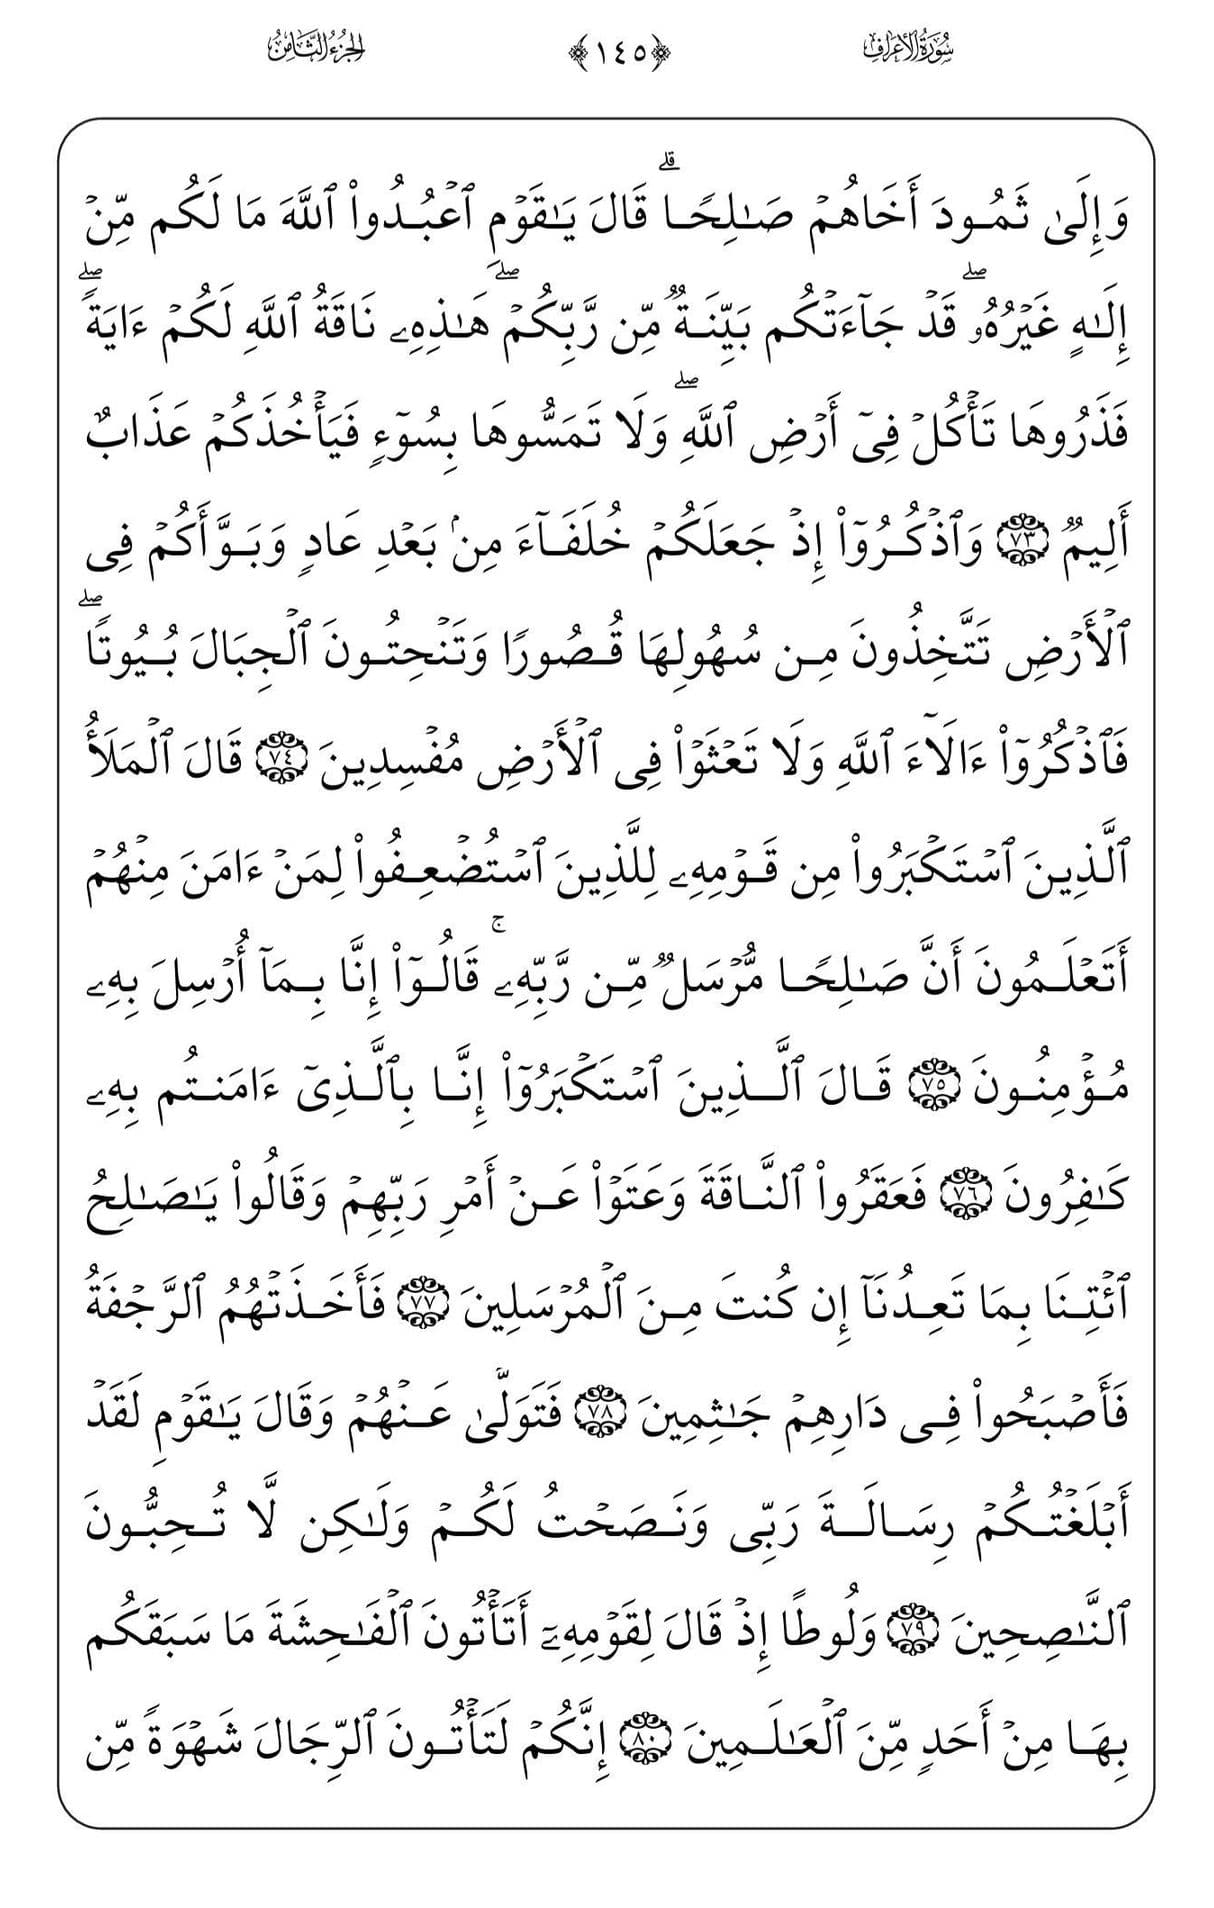 سُورَةُ الأَعۡرَافِ ﴿١٤٥﴾ الجُزۡءُ الثَّامِنُ
وَإِلَىٰ ثَمُودَ أَخَاهُمۡ صَٰلِحٗاۚ قَالَ يَٰقَوۡمِ ٱعۡبُدُواْ ٱللَّهَ مَا لَكُم مِّنۡ
إِلَٰهٍ غَيۡرُهُۥۖ قَدۡ جَآءَتۡكُم بَيِّنَةٞ مِّن رَّبِّكُمۡۖ هَٰذِهِۦ نَاقَةُ ٱللَّهِ لَكُمۡ ءَايَةٗۖ
فَذَرُوهَا تَأۡكُلۡ فِيٓ أَرۡضِ ٱللَّهِۖ وَلَا تَمَسُّوهَا بِسُوٓءٖ فَيَأۡخُذَكُمۡ عَذَابٌ
أَلِيمٞ ٧٣ وَٱذۡكُرُوٓاْ إِذۡ جَعَلَكُمۡ خُلَفَآءَ مِنۢ بَعۡدِ عَادٖ وَبَوَّأَكُمۡ فِي
ٱلۡأَرۡضِ تَتَّخِذُونَ مِن سُهُولِهَا قُصُورٗا وَتَنۡحِتُونَ ٱلۡجِبَالَ بُيُوتٗاۖ
فَٱذۡكُرُوٓاْ ءَالَآءَ ٱللَّهِ وَلَا تَعۡثَوۡاْ فِي ٱلۡأَرۡضِ مُفۡسِدِينَ ٧٤ قَالَ ٱلۡمَلَأُ
ٱلَّذِينَ ٱسۡتَكۡبَرُواْ مِن قَوۡمِهِۦ لِلَّذِينَ ٱسۡتُضۡعِفُواْ لِمَنۡ ءَامَنَ مِنۡهُمۡ
أَتَعۡلَمُونَ أَنَّ صَٰلِحٗا مُّرۡسَلٞ مِّن رَّبِّهِۦۚ قَالُوٓاْ إِنَّا بِمَآ أُرۡسِلَ بِهِۦ
مُؤۡمِنُونَ ٧٥ قَالَ ٱلَّذِينَ ٱسۡتَكۡبَرُوٓاْ إِنَّا بِٱلَّذِيٓ ءَامَنتُم بِهِۦ
كَٰفِرُونَ ٧٦ فَعَقَرُواْ ٱلنَّاقَةَ وَعَتَوۡاْ عَنۡ أَمۡرِ رَبِّهِمۡ وَقَالُواْ يَٰصَٰلِحُ
ٱئۡتِنَا بِمَا تَعِدُنَآ إِن كُنتَ مِنَ ٱلۡمُرۡسَلِينَ ٧٧ فَأَخَذَتۡهُمُ ٱلرَّجۡفَةُ
فَأَصۡبَحُواْ فِي دَارِهِمۡ جَٰثِمِينَ ٧٨ فَتَوَلَّىٰ عَنۡهُمۡ وَقَالَ يَٰقَوۡمِ لَقَدۡ
أَبۡلَغۡتُكُمۡ رِسَالَةَ رَبِّي وَنَصَحۡتُ لَكُمۡ وَلَٰكِن لَّا تُحِبُّونَ
ٱلنَّٰصِحِينَ ٧٩ وَلُوطًا إِذۡ قَالَ لِقَوۡمِهِۦٓ أَتَأۡتُونَ ٱلۡفَٰحِشَةَ مَا سَبَقَكُم
بِهَا مِنۡ أَحَدٖ مِّنَ ٱلۡعَٰلَمِينَ ٨٠ إِنَّكُمۡ لَتَأۡتُونَ ٱلرِّجَالَ شَهۡوَةٗ مِّن